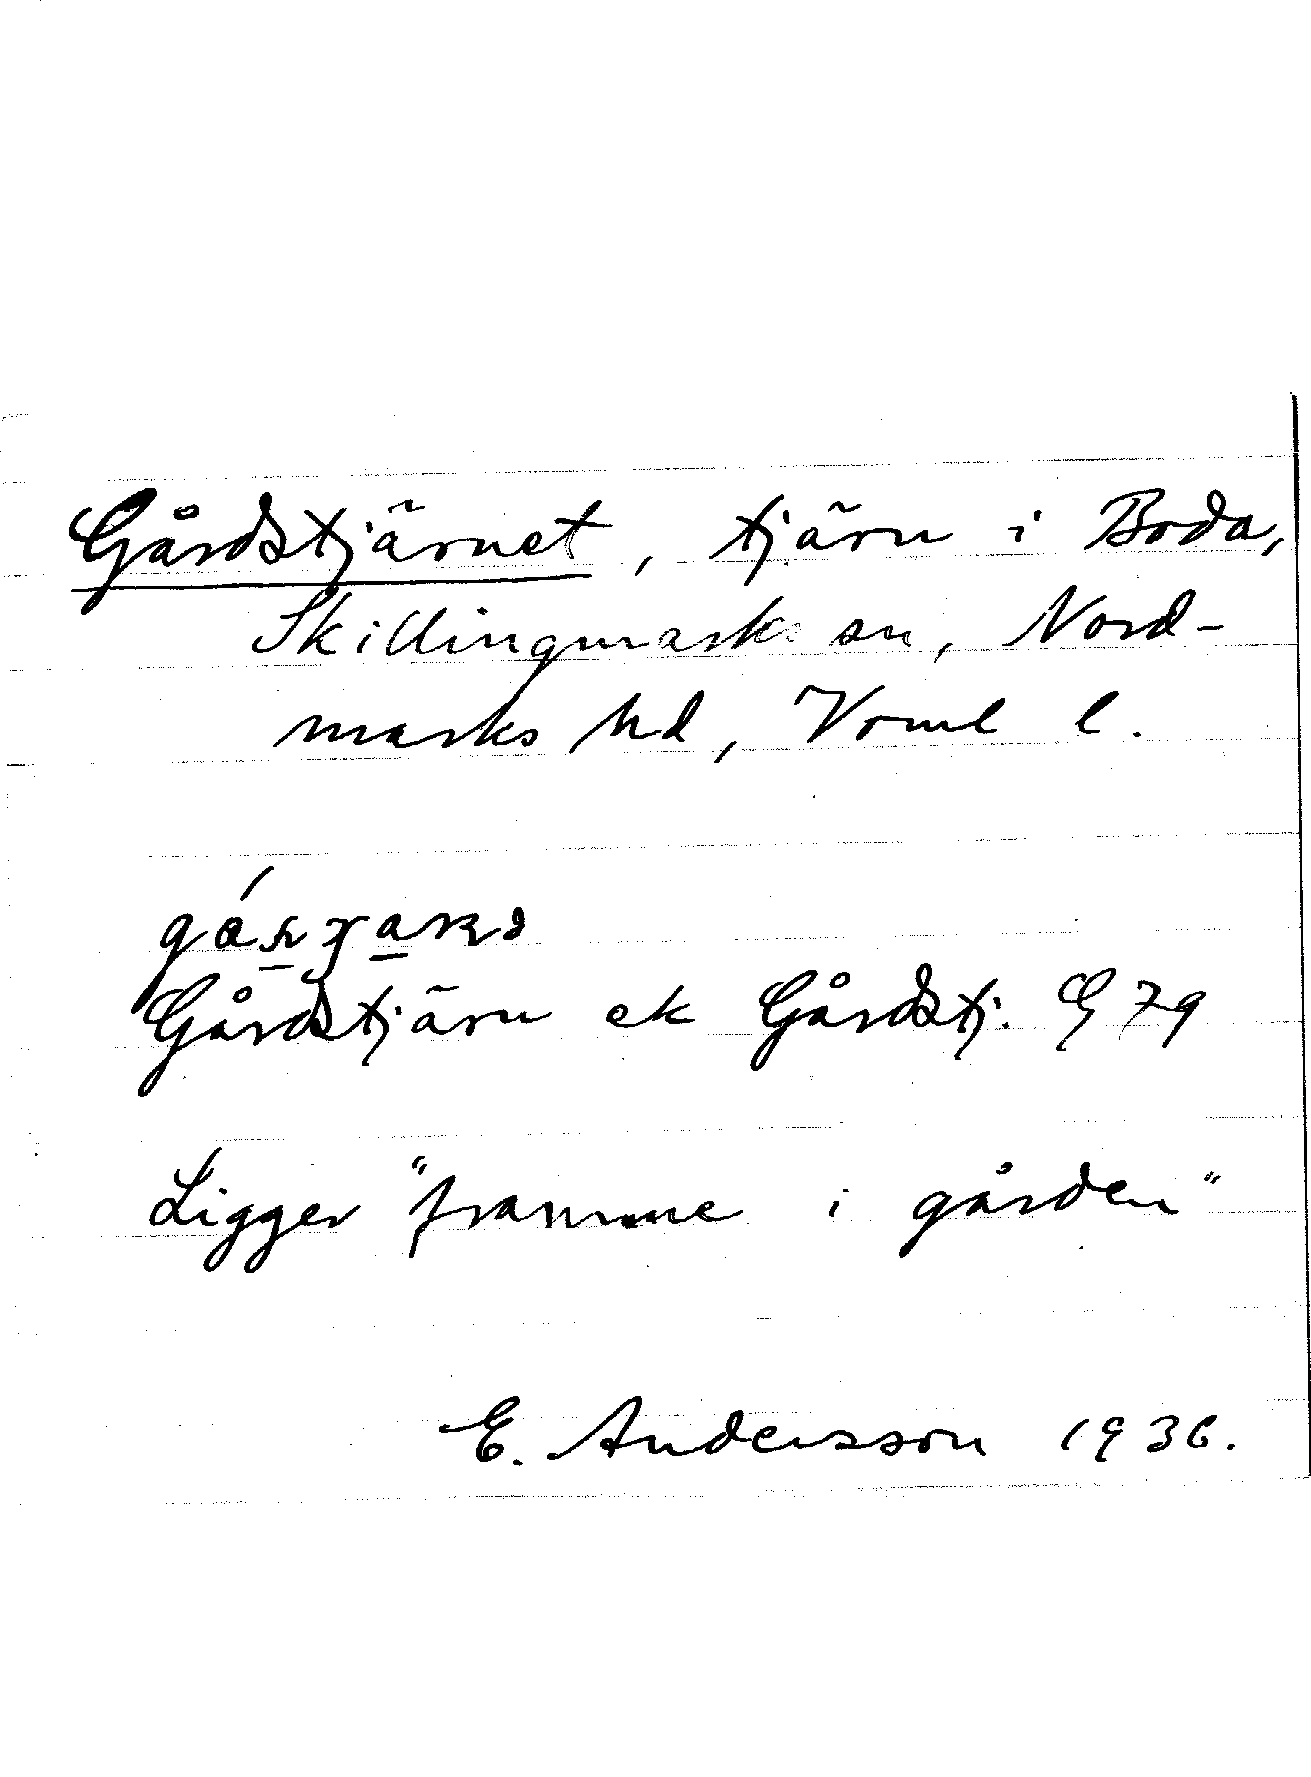 Gårdstjärnet, tjärn i Boda,
Skillingmarks sn, Nord-
marks hd, Vrml l.
Gårdstjärn ek Gårdstj. G 79
Ligger "framme i gården"
E. Andersson 1936.